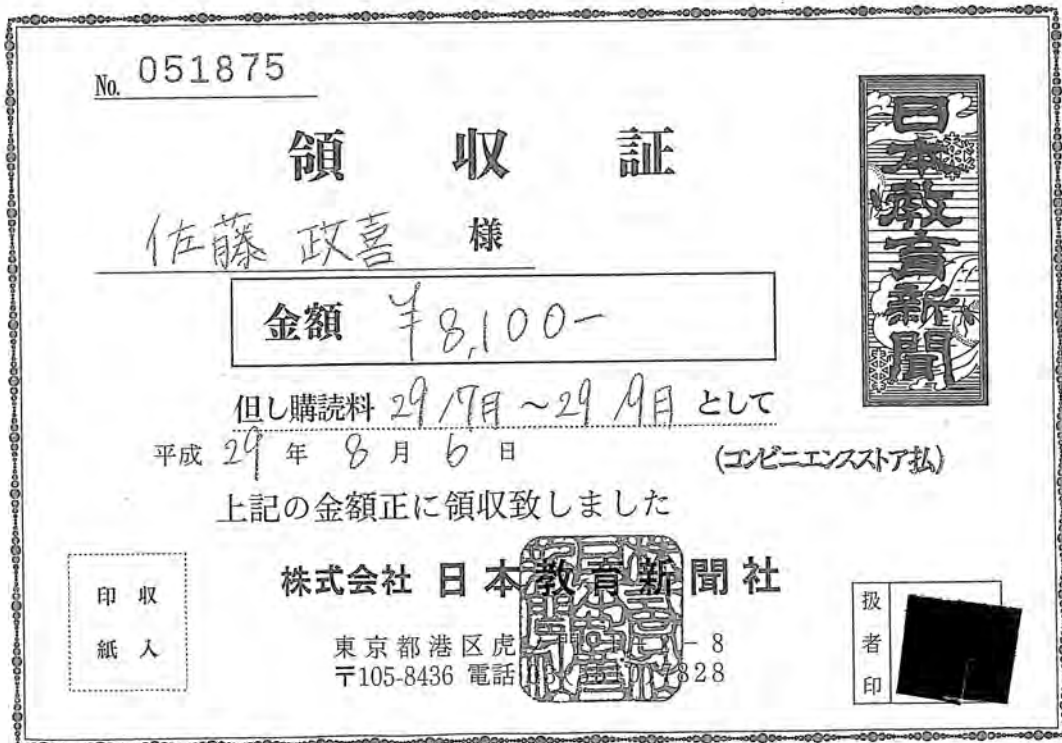 No. 051875
領収証
日本教育新聞
佐藤 政喜 様
金額 ¥8,100-
但し購読料 29/7月〜29/9月 として
平成 29 年 8 月 6 日
(コンビニエンスストア払)
上記の金額正に領収致しました
株式会社 日本教育新聞社
東京都港区虎 - 8
〒105-8436 電話 828
収入
印紙
扱者印